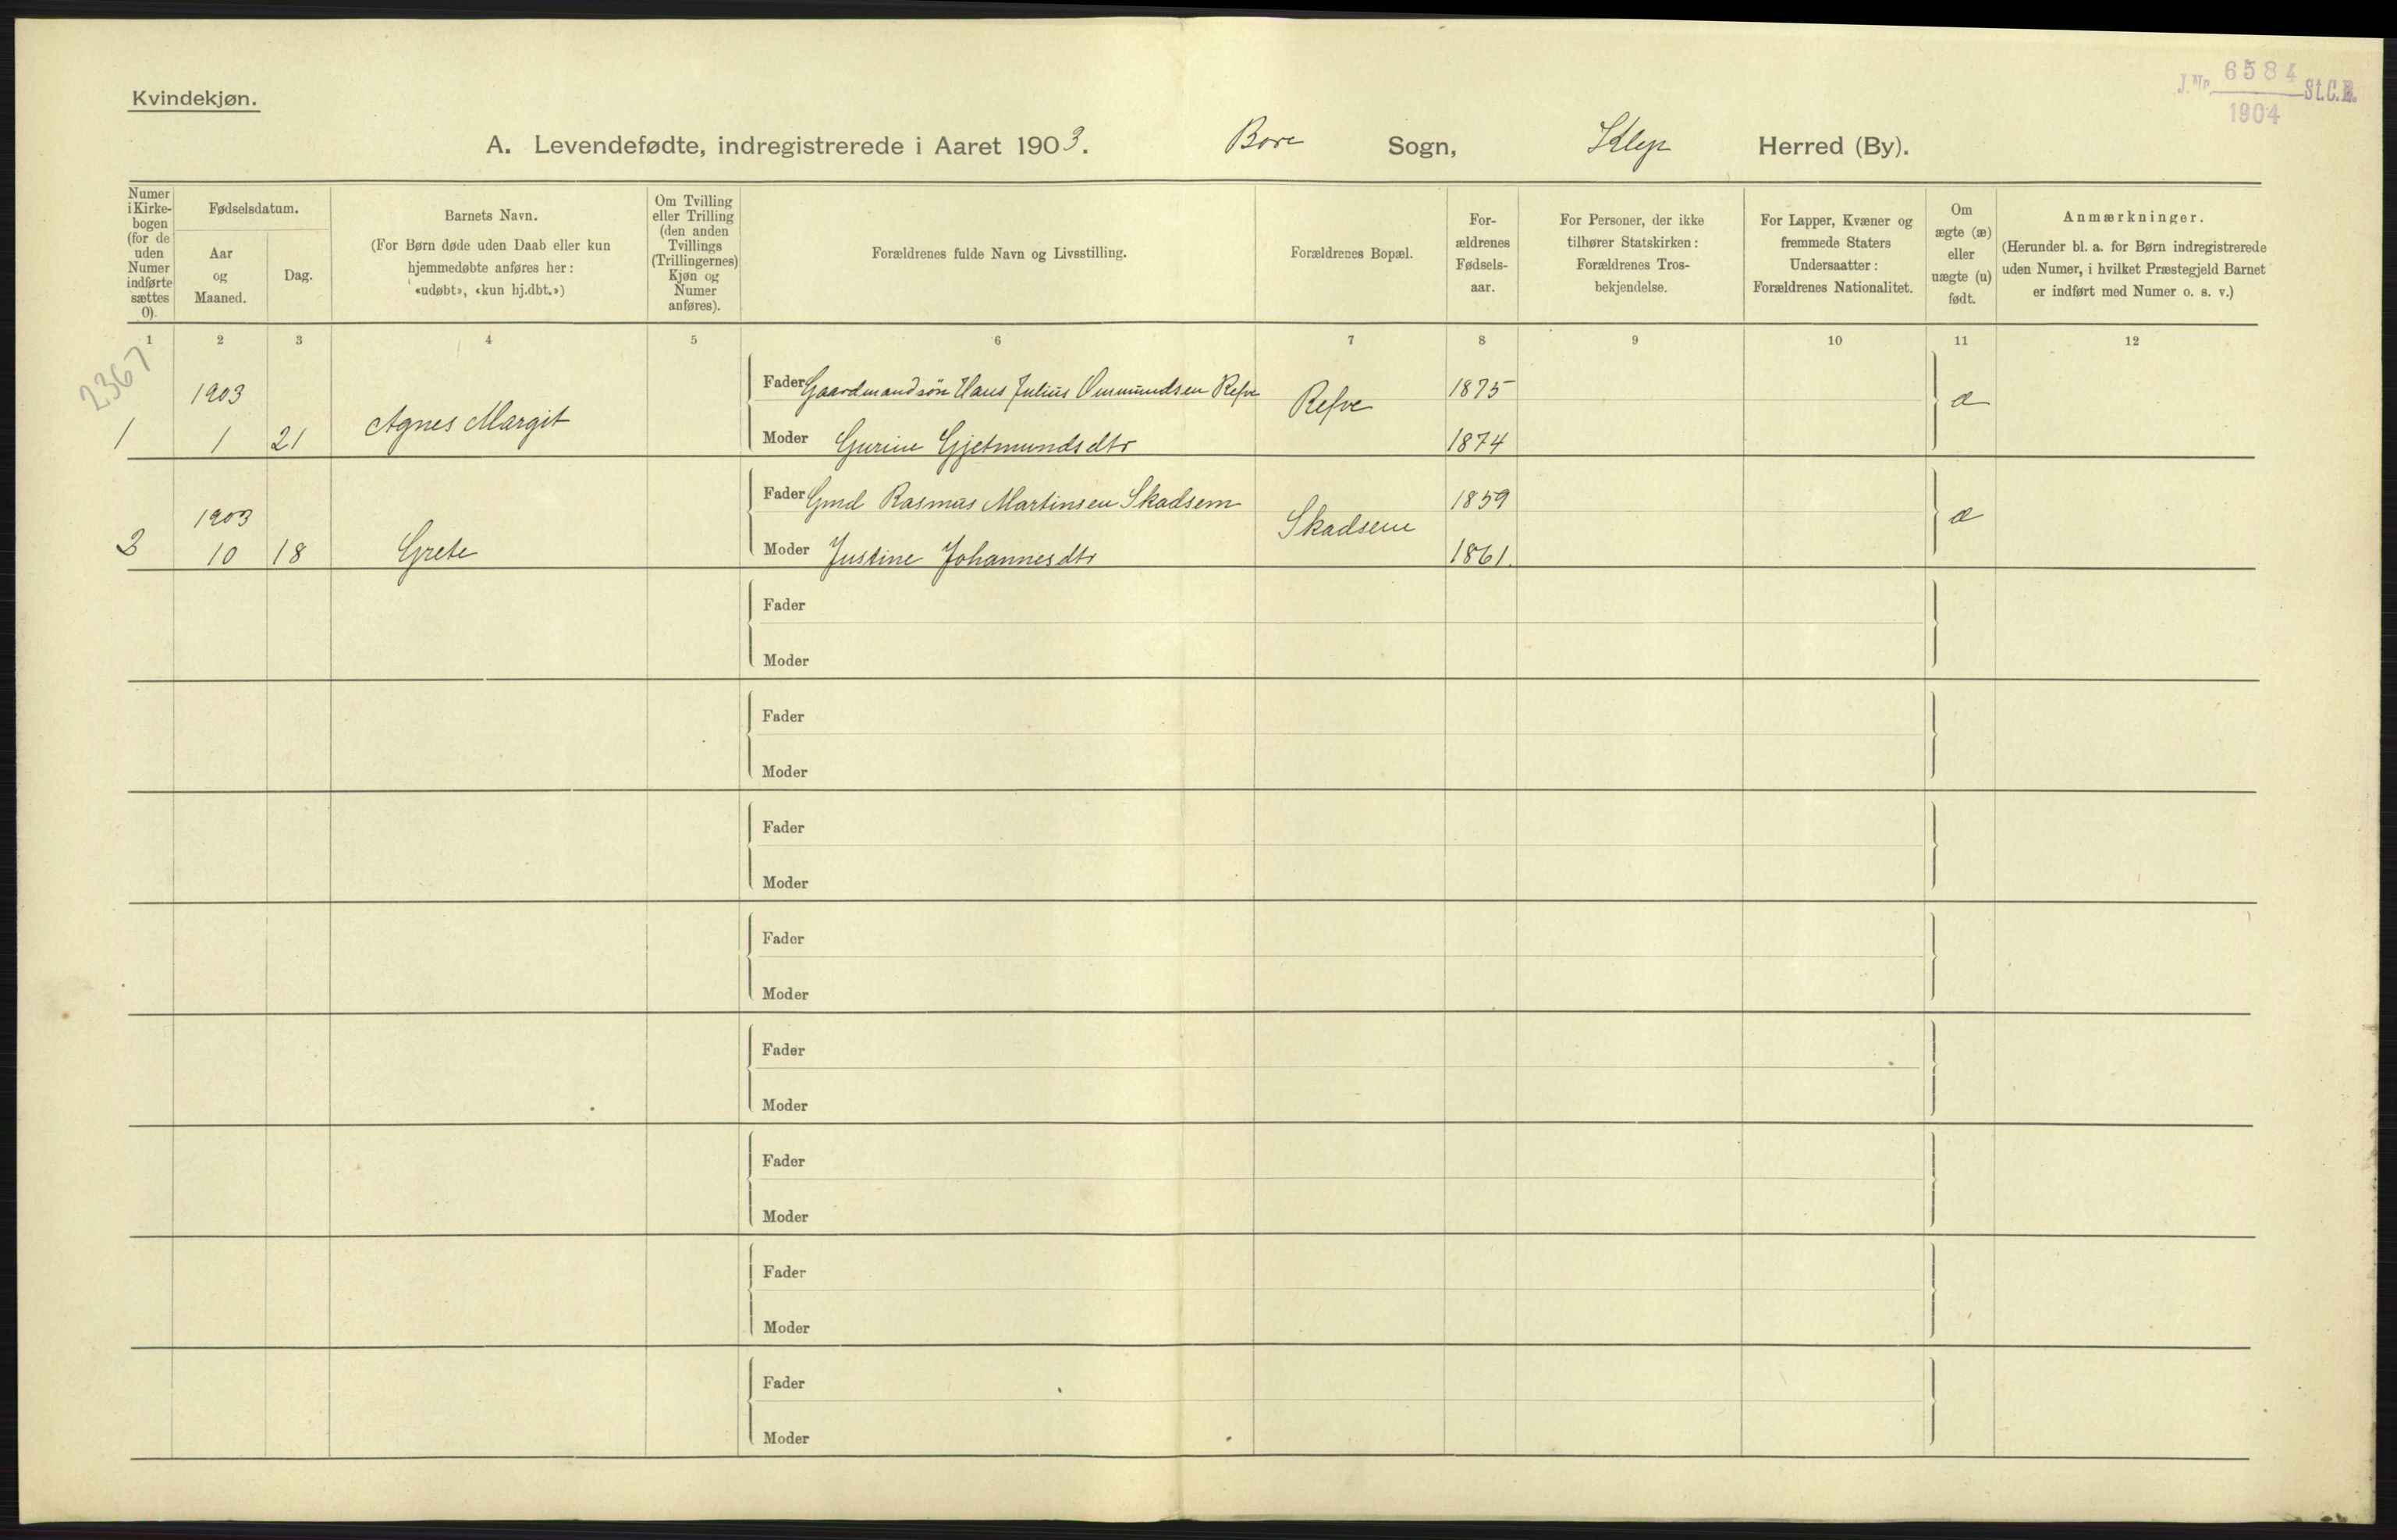 Kvindekjøn.
J.Nr. 6584 St.C.B.
1904
A. Levendefødte, indregistrerede i Aaret 1903. Bore Sogn, Klep Herred (By).
Numer i Kirkebogen (for de uden Numer indførte sættes 0).
Fødselsdatum.
Aar og Maaned.
Dag.
Barnets Navn.
(For Børn døde uden Daab eller kun
hjemmedøbte anføres her:
«udøbt», «kun hj.dbt.»)
Om Tvilling
eller Trilling
(den anden
Tvillings
(Trillingernes)
Kjøn og
Numer
anføres).
Forældrenes fulde Navn og Livsstilling.
Forældrenes Bopæl.
For-
ældrenes
Fødsels-
aar.
For Personer, der ikke
tilhører Statskirken:
Forældrenes Tros-
bekjendelse.
For Lapper, Kvæner og
fremmede Staters
Undersaatter:
Forældrenes Nationalitet.
Om
ægte (æ)
eller
uægte (u)
født.
Anmærkninger.
(Herunder bl. a. for Børn indregistrerede
uden Numer, i hvilket Præstegjeld Barnet
er indført med Numer o. s. v.)
1 2 3 4 5 6 7 8 9 10 11 12
2367
1 1903 1 21 Agnes Margit
Fader Gaardmandsøn Hans Julius Ommundsen Refve Refve 1875 æ
Moder Gurine Gjetmundsdtr 1874
2 1903 10 18 Grete
Fader Gmd Rasmus Martinsen Skadsem Skadsem 1859 æ
Moder Justine Johannesdtr 1861.
Fader
Moder
Fader
Moder
Fader
Moder
Fader
Moder
Fader
Moder
Fader
Moder
Fader
Moder
Fader
Moder